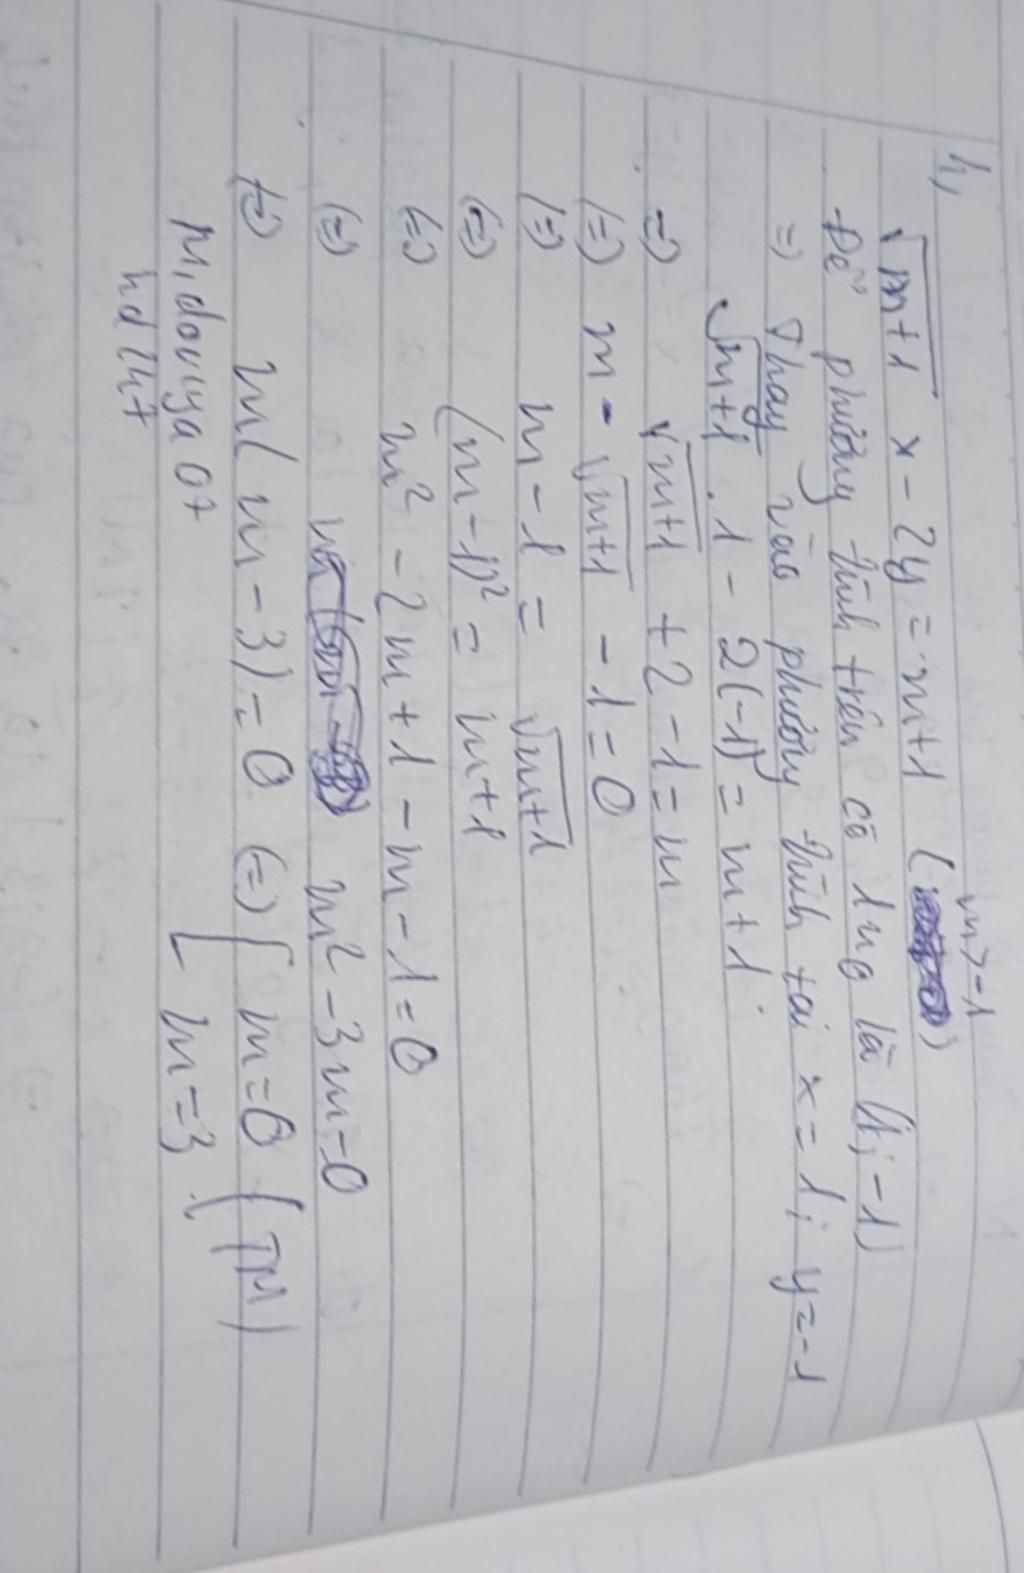 h,
m > -1
√m+1 x - 2y = m+1 ( )
Để phương trình trên có 1 no là (1; -1)
=> Thay vào phương trình tại x = 1; y = -1
√m+1 . 1 - 2(-1) = m+1.
=> √m+1 + 2 - 1 = m
(=) m - √m+1 - 1 = 0
(=) m - 1 = √m+1
(=) (m - 1)² = m+1
(=) m² - 2m + 1 - m - 1 = 0
(=) m² - 3m = 0
(=) m( m - 3) = 0 (=) [ m = 0 (TM)
[ m = 3
M, doviya 07
hd 147